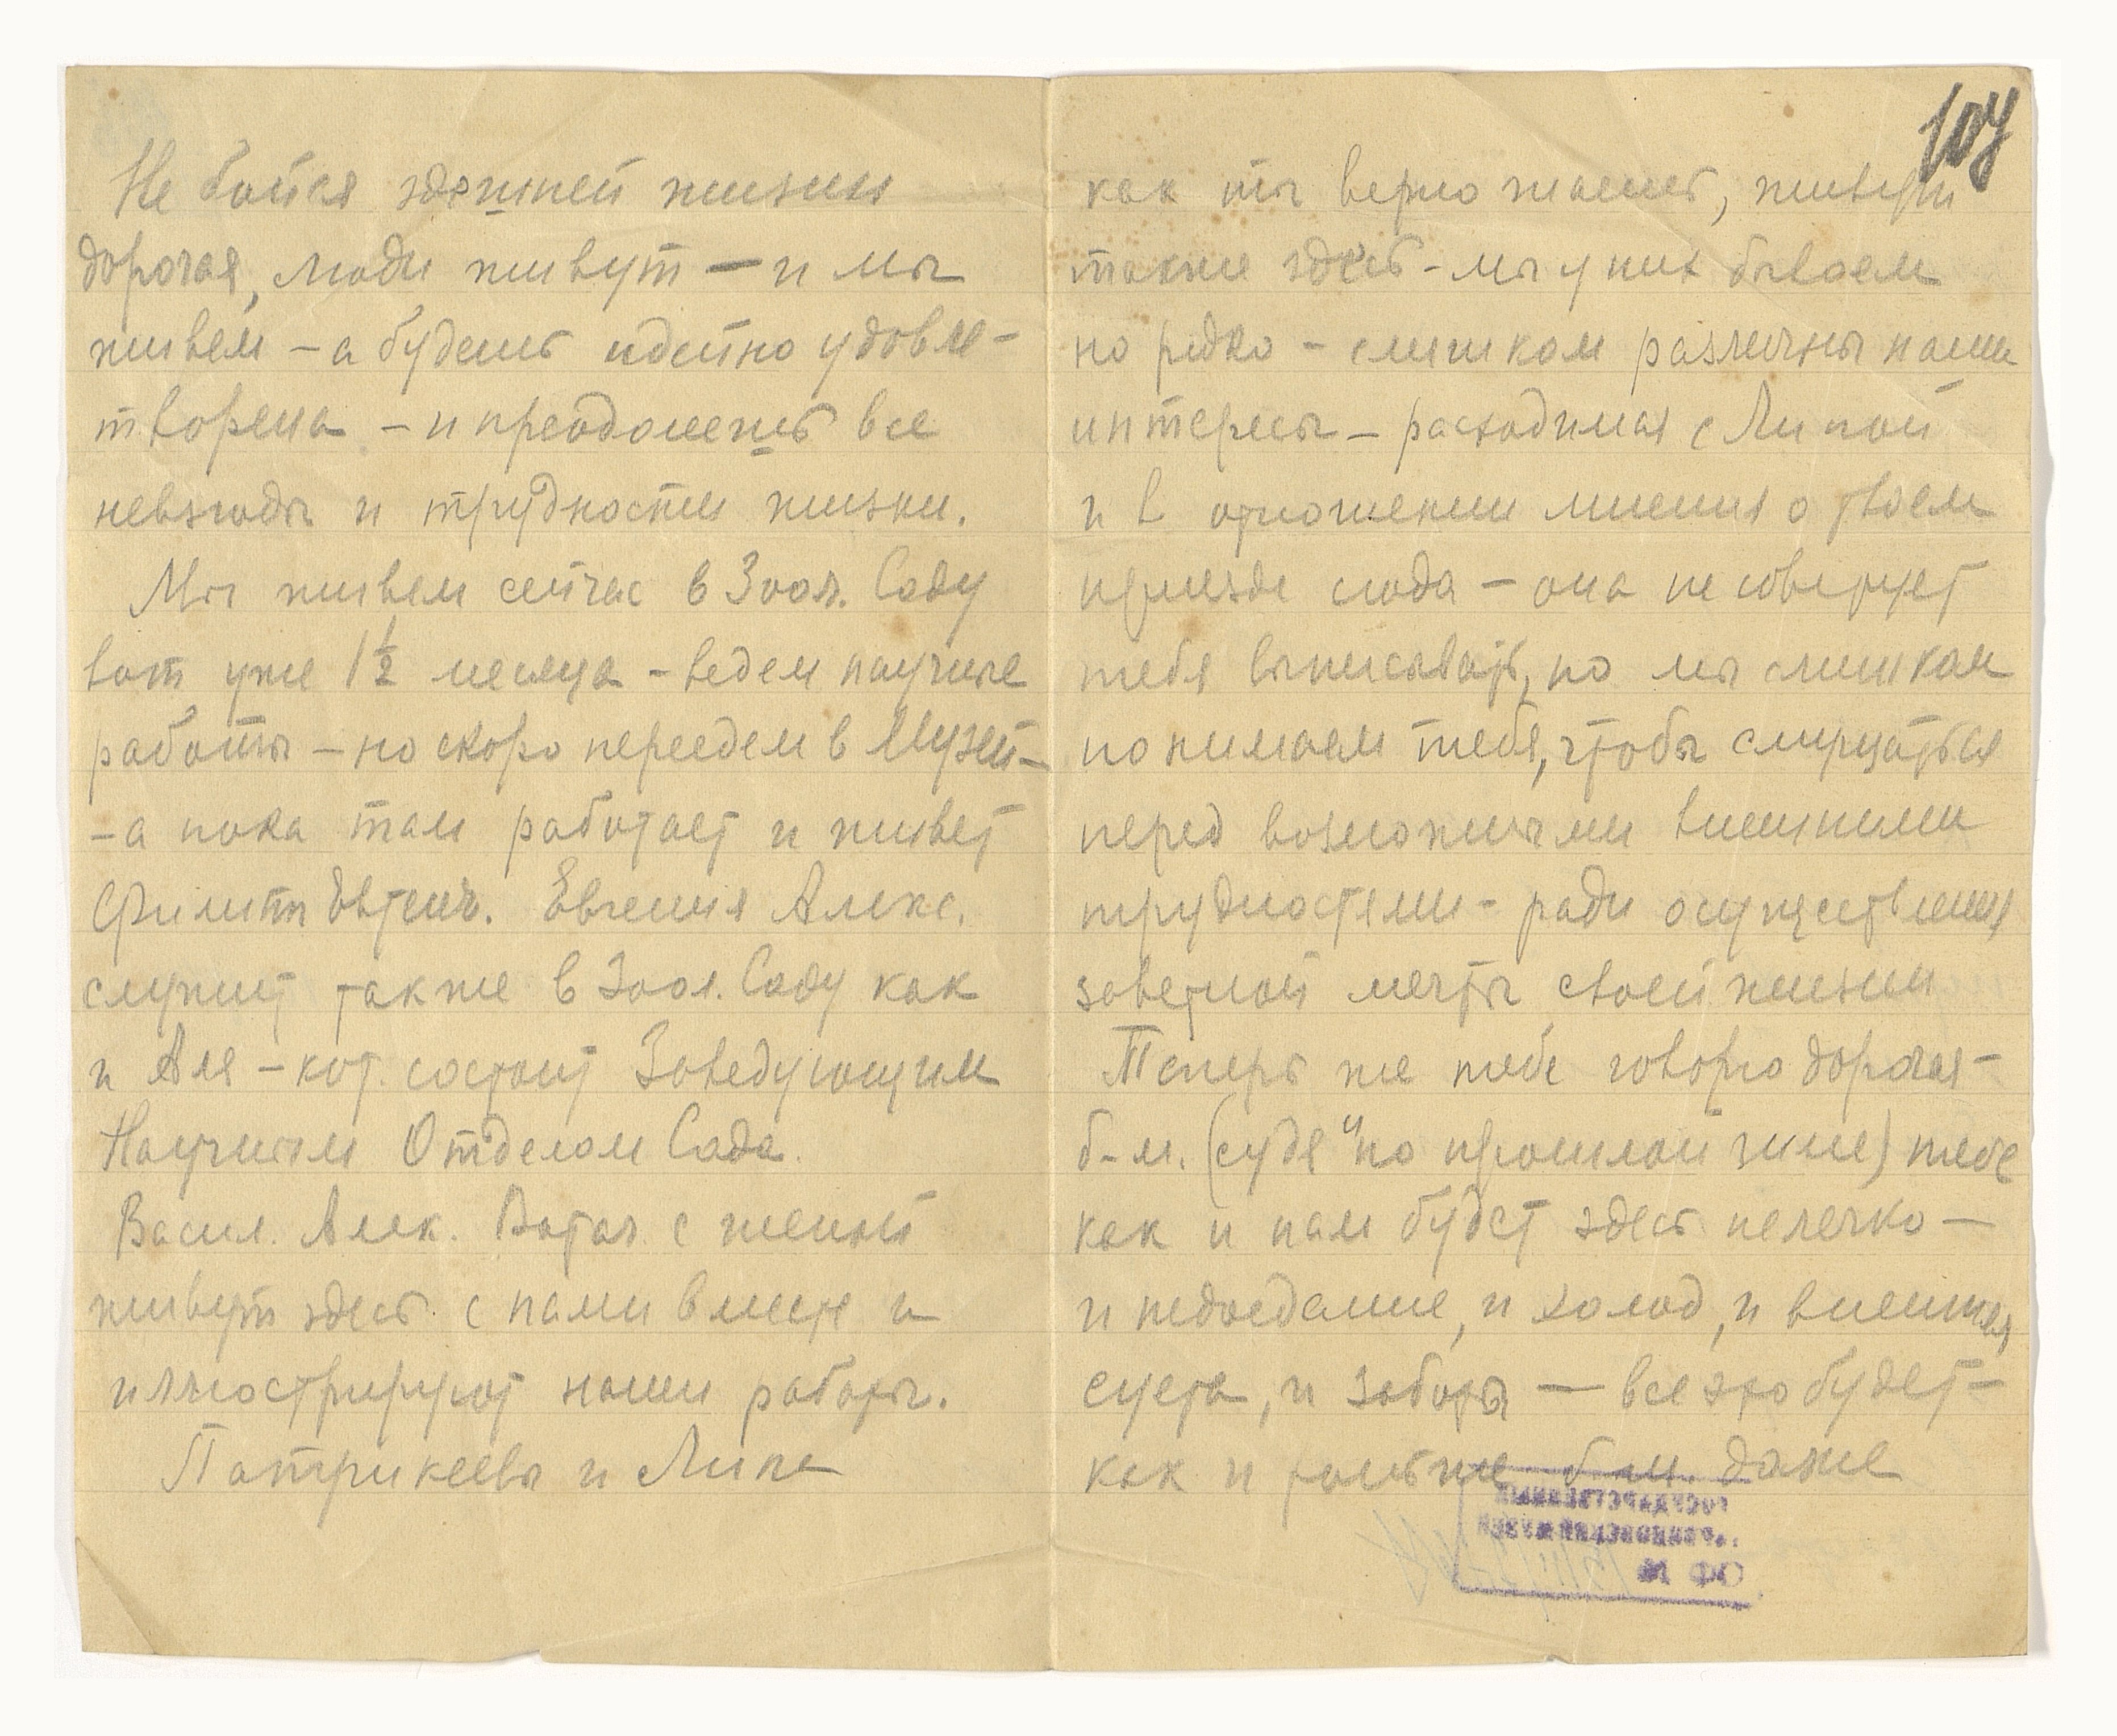 Не бойся здешней жизни
дорогая, люди живут — и мы
живем — а будешь идейно удовле-
творена — и преодолеешь все
невзгоды и трудности жизни.
Мы живем сейчас в Зоол. Саду
вот уже 1½ месяца — ведем научные
работы — но скоро переедем в Музей —
— а пока там работает и живет
Филипп Евтеич. Евгения Алекс.
служит также в Зоол. Саду как
и Аля — кот. состоит Заведующим
Научным Отделом Сада.
Васил. Алек. Ватаг. с женой
живут здесь с нами вместе и
иллюстрируют наши работы.
Патрикеевы и Липа
107
как ты верно знаешь, живут
также здесь — мы у них бываем
но редко — слишком различны наши
интересы — расходимся с Липой
и в отношении мнения о твоем
приезде сюда — она не советует
тебя выписывать, но мы слишком
понимаем тебя, чтобы смущаться
перед возможными внешними
трудностями — ради осуществления
заветной мечты своей жизни
Теперь же тебе говорю дорогая —
б. м. (судя по прошлой зиме) тебе
как и нам будет здесь нелегко —
и недоедание, и холод, и внешняя
суета, и заботы — все это будет —
как и также б. м. даже
ГОСУДАРСТВЕННЫЙ
ДАРВИНОВСКИЙ МУЗЕЙ
ОФ №